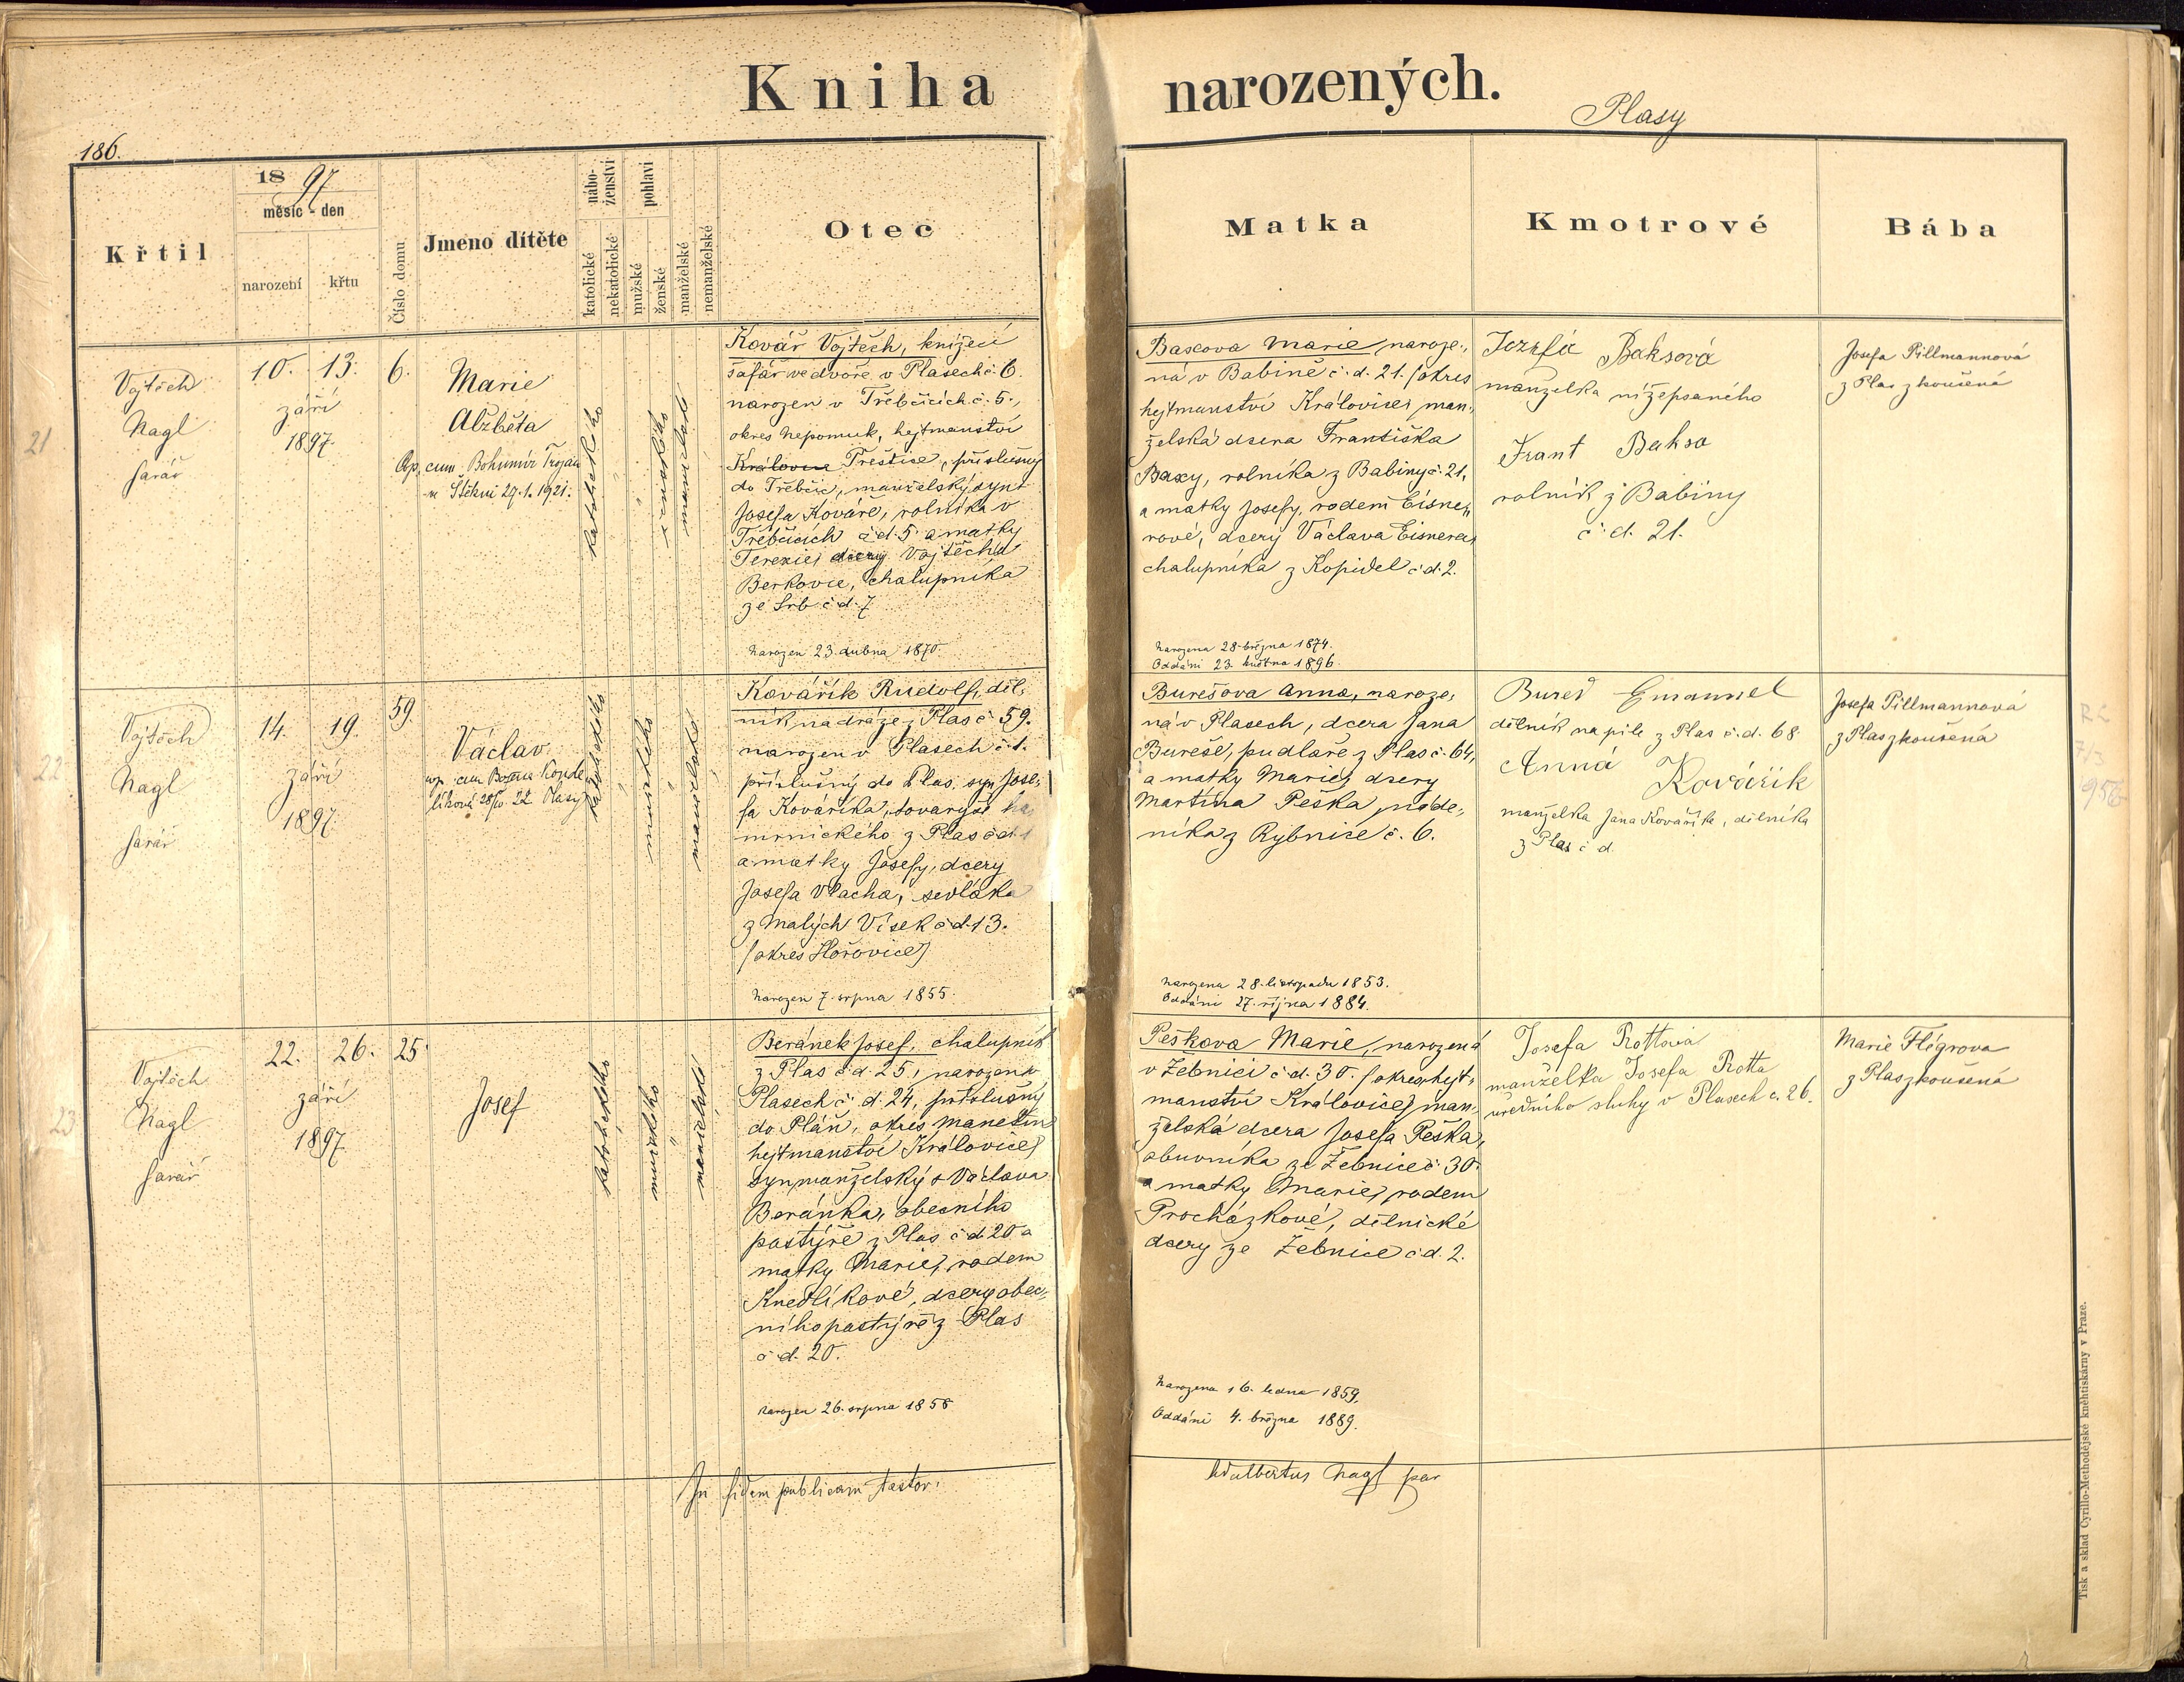 Kniha narozených.
Plasy
186.
Křtil
18 97
měsíc - den
narození
křtu
Číslo domu
Jmeno dítěte
nábo-
ženství
katolické
nekatolické
pohlaví
mužské
ženské
manželské
nemanželské
Otec
Matka
Kmotrové
Bába
21
Vojtěch
Nagl
farář
10. 13.
září
1897.
6.
Marie
Alžběta
Cop. cum Bohumír Trojan
Stěkni 29.1.1921.
katolického
ženského
manželské
Kovář Vojtěch, knížecí
šafář ve dvoře v Plasech č. 6.
narozen v Třebčicích č. 5.,
okres Nepomuk, hejtmanství
Královice Přeštice, příslušný
do Třebčic, manželský syn
Josefa Kováře, rolníka v
Třebčicích č. d. 5 a matky
Terezie, dcery Vojtěcha
Berkovce, chalupníka
ze Srb č. d. 7.
Narozen 23. dubna 1870.
Baxova Marie, naroze-
ná v Babině č. d. 21. (okres
hejtmanství Královice) man-
želská dcera Františka
Baxy, rolníka z Babiny č. 21,
a matky Josefy, rodem Eisne-
rové, dcery Václava Eisnera,
chalupníka z Kopidel č. d. 2.
Narozena 28. března 1874.
Oddáni 23. května 1896.
Jozefa Baksová
manželka nížepsaného
Frant Baksa
rolník z Babiny
č. d. 21.
Josefa Pillmannová
z Plas zkoušená
22
Vojtěch
Nagl
farář
14. 19.
září
1897.
59.
Václav
cop. cum Božena Kozde-
líková 28/10. 22 Plasy
katolického
mužského
manželské
Kovářík Rudolf, děl-
ník na dráze z Plas č. 59.
narozen v Plasech č. 1.
příslušný do Plas, syn Jose-
fa Kováříka, tovaryše
z Plas č. d. 1
a matky Josefy, dcery
Josefa Vlacha, sedláka
z Malých Vísek č. d. 13.
(okres Hořovice)
Narozen 7. srpna 1855.
Burešova Anna, naroze-
ná v Plasech, dcera Jana
Bureše, pudláře z Plas č. 64,
a matky Marie, dcery
Martina Peška, náde-
níka z Rybnice č. 6.
Narozena 28. listopadu 1853.
Oddáni 27. října 1884.
Bureš Emanuel
dělník na pile z Plas č. d. 68.
Anná Kovářik
manželka Jana Kováříka, dělníka
z Plas č. d.
Josefa Pillmannová
z Plas zkoušená
RČ
7/3
956
23
Vojtěch
Nagl
farář
22. 26.
září
1897.
25.
Josef
katolického
mužského
manželské
Beránek Josef, chalupník
z Plas č. d. 25, narozen v
Plasech č. d. 24, příslušný
do Pláň, okres Manetín
hejtmanství Královice)
syn manželský + Václava
Beránka, obecního
pastýře z Plas č. d. 20 a
matky Marie, rodem
Knedlíkové, dcery obec-
ního pastýře z Plas
č. d. 20.
Narozen 26. srpna 1858
Peškova Marie, narozená
v Žebnici č. d. 30. (okres, hejt-
manství Královice) man-
želská dcera Josefa Peška,
obuvníka ze Žebnice č. 30.
a matky Marie, rodem
Procházkové, dělnické
dcery ze Žebnice č. d. 2.
Narozena 16. ledna 1859,
Oddáni 4. března 1889.
Josefa Rottová
manželka Josefa Rotta
úředního sluhy v Plasech č. 26.
Marie Flégrova
z Plas zkoušená
In fidem publicam testor:
Adalbertus Nagl par
Tisk a sklad Cyrillo-Methodějské kněhtiskárny v Praze.